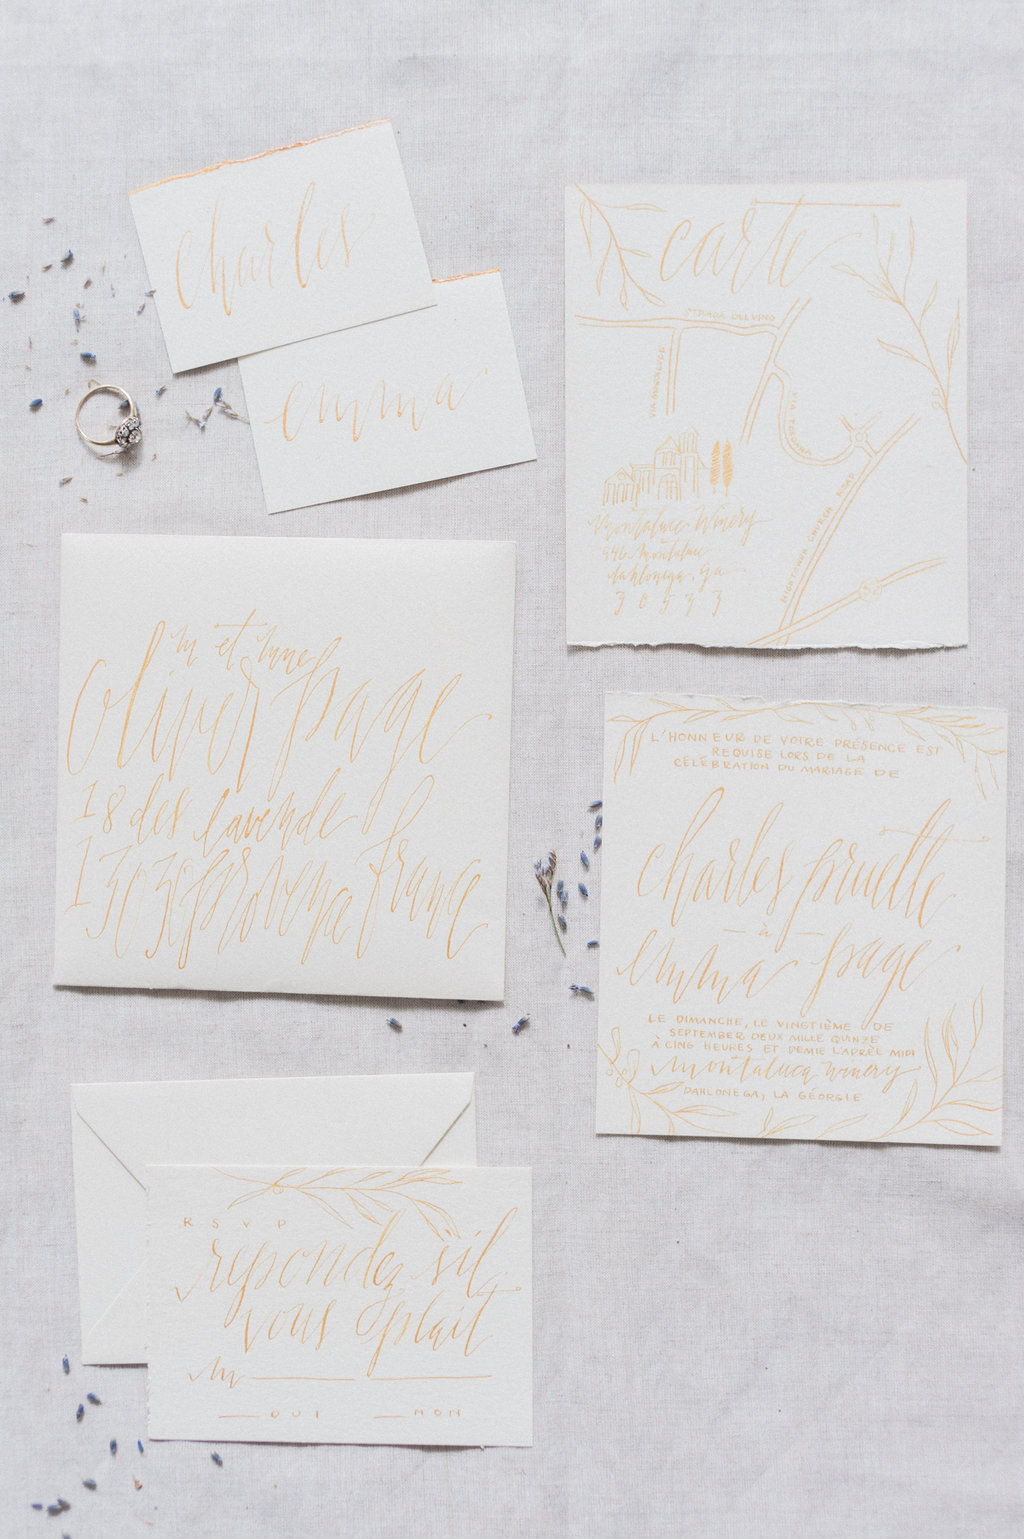 charles
emma
carte
STRADA DEL VINO
VIA MONTALUCE
VINEYARD VIA
HIGHTOWER CHURCH ROAD
Montaluce Winery
946 Montaluce
dahlonega, ga
30533
m et mme
oliver page
18 des lavende
13030 provence france
L'HONNEUR DE VOTRE PRÉSENCE EST
REQUISE LORS DE LA
CÉLÉBRATION DU MARIAGE DE
charles pruette
à
emma page
LE DIMANCHE, LE VINGTIÈME DE
SEPTEMBER DEUX MILLE QUINZE
À CINQ HEURES ET DEMIE L'APRÈS MIDI
montaluce winery
DAHLONEGA, LA GÉORGIE
RSVP
repondez s'il
vous plait
m
OUI NON